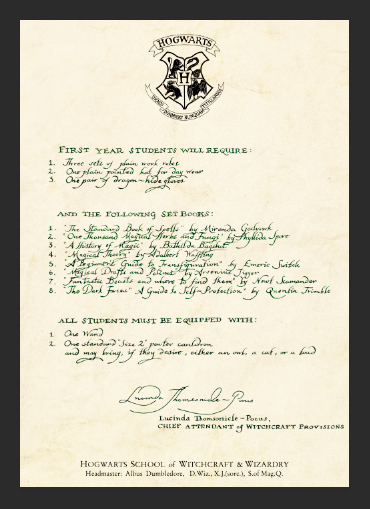 HOGWARTS
FIRST YEAR STUDENTS WILL REQUIRE:
1. Three sets of plain work robes
2. One plain pointed hat for day wear
3. One pair of dragon-hide gloves
AND THE FOLLOWING SET BOOKS:
1. "The Standard Book of Spells" by Miranda Goshawk
2. "One Thousand Magical Herbs and Fungi" by Phyllida Spore
3. "A History of Magic" by Bathilda Bagshot
4. "Magical Theory" by Adalbert Waffling
5. "A Beginners Guide to Transfiguration" by Emeric Switch
6. "Magical Drafts and Potions" by Arsenius Jigger
7. "Fantastic Beasts and where to find them" by Newt Scamander
8. "The Dark Forces" A Guide to Self-Protection" by Quentin Trimble
ALL STUDENTS MUST BE EQUIPPED WITH:
1. One Wand
2. One standard "Size 2" pewter cauldron
and may bring, if they desire, either an owl, a cat, or a toad
Lucinda Thomsonicle-Pocus
Lucinda Thomsonicle-Pocus,
CHIEF ATTENDANT of WITCHCRAFT PROVISIONS
HOGWARTS SCHOOL of WITCHCRAFT & WIZARDRY
Headmaster: Albus Dumbledore, D.Wiz., X.J.(sorc.), S.of Mag.Q.